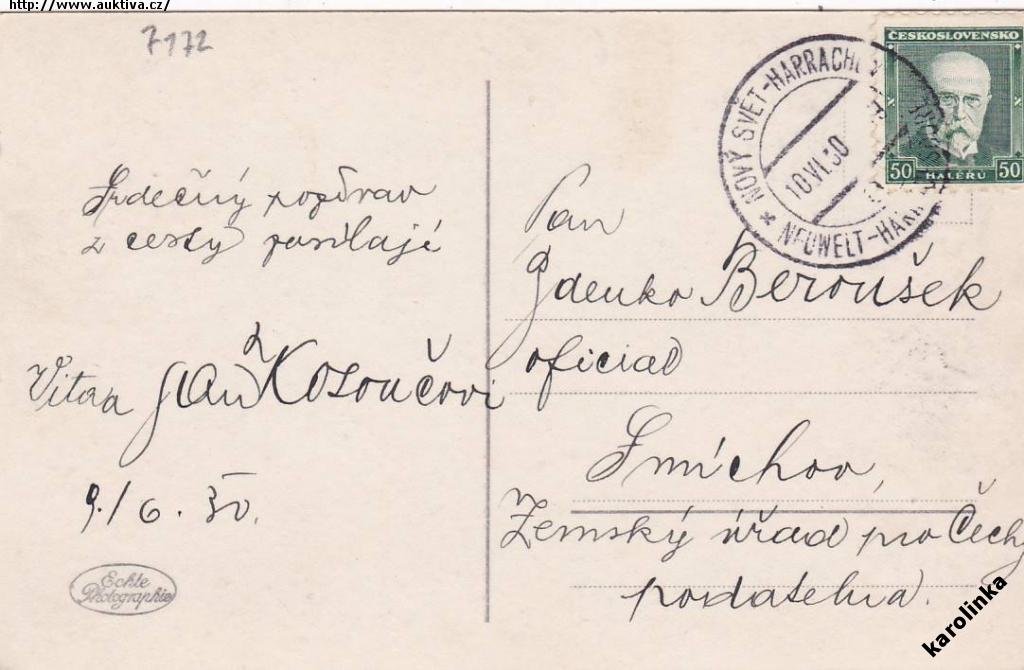 http://www.auktiva.cz/
7172
ČESKOSLOVENSKO
50 HALÉŘŮ 50
NOVÝ SVĚT-HARRACHOV
10.VI.30
NEUWELT-HARR
Srdečný pozdrav
z cesty posílají
Jan Kosoučovi
9./6.30.
Echte
Photographie
Pan
Zdenko Beroušek
oficial
Smíchov,
Zemský úřad pro Čechy
podatelna.
karolinka